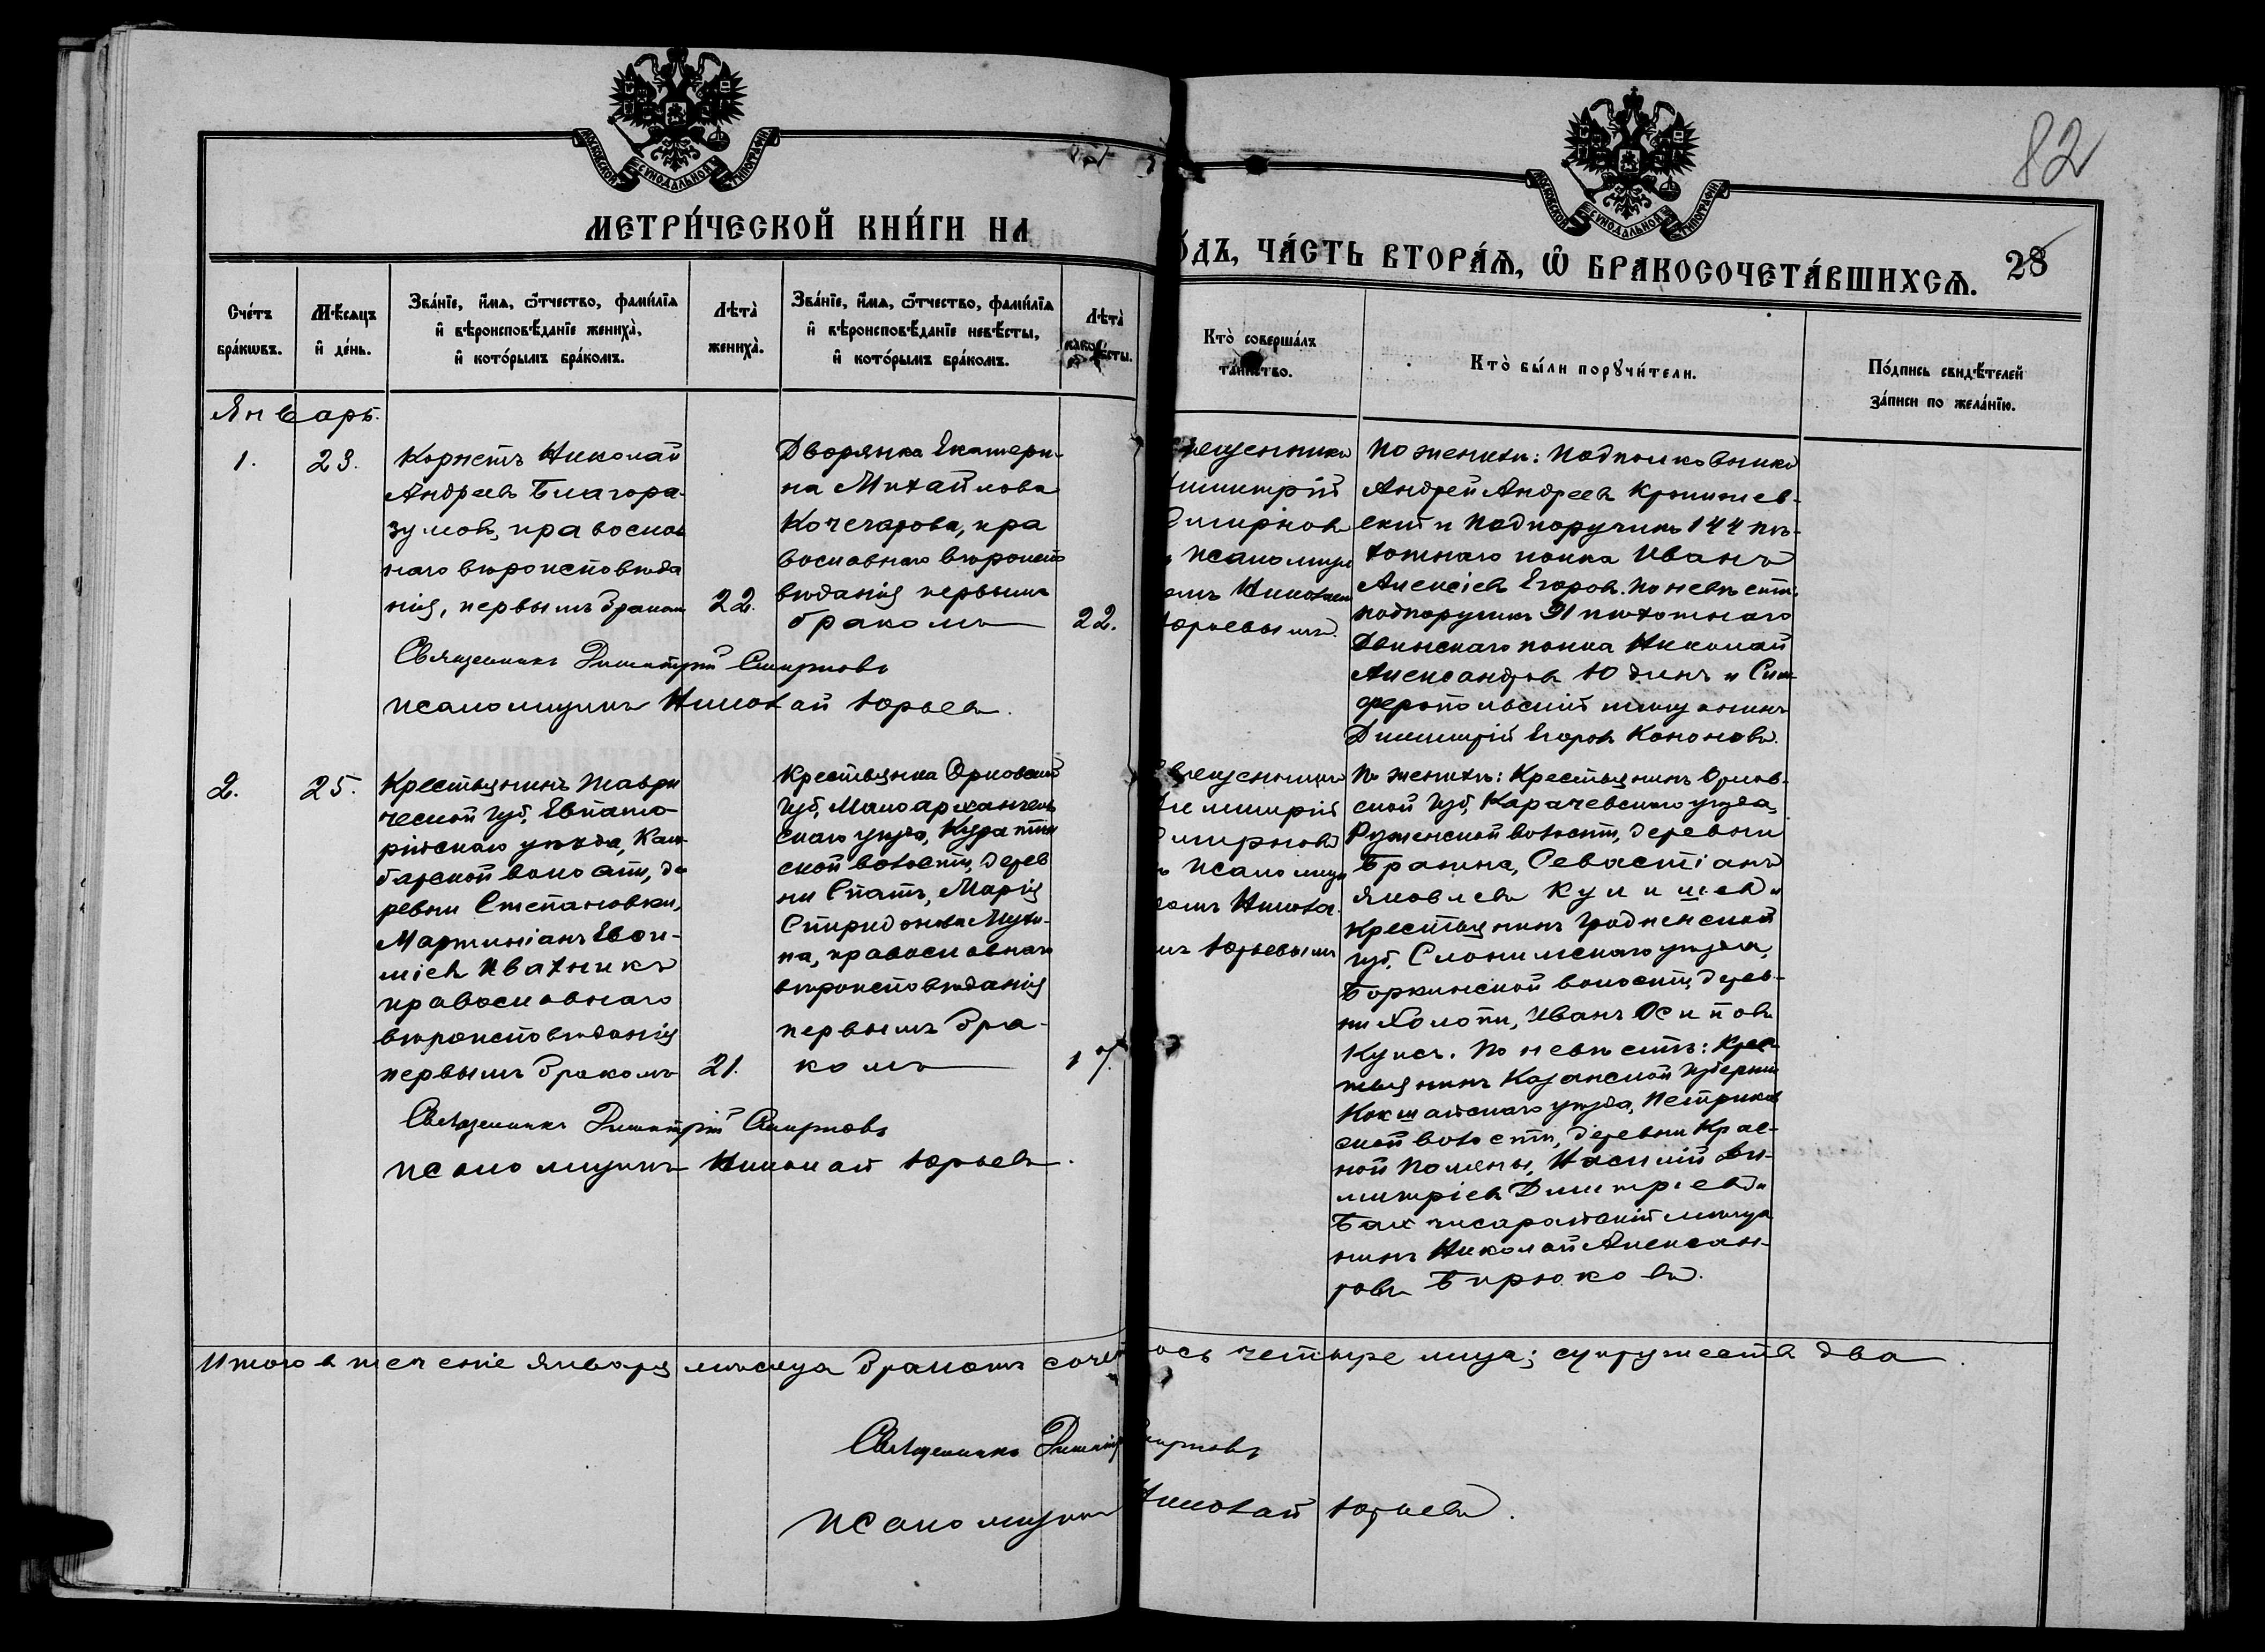 МОСКОВСКОЙ СѴНОДАЛЬНОЙ ТИПОГРАФІИ
МОСКОВСКОЙ СѴНОДАЛЬНОЙ ТИПОГРАФІИ
82
МЕТРИ́ЧЕСКОЙ КНИ́ГИ НА
О́ДЪ, ЧА́СТЬ ВТОРА́Ѧ, Ѡ҆ БРАКОСОЧЕТА́ВШИХСѦ.
28
Сче́тъ бра́кѡвъ.
Мѣ́сяцъ и҆ де́нь.
Зва́нїе, и҆́мѧ, ѻ҆́тчество, фами́лїѧ
и҆ вѣроисповѣ́данїе жениха̀,
и҆ кото́рымъ бра́комъ.
Лѣта̀ жениха̀.
Зва́нїе, и҆́мѧ, ѻ҆́тчество, фами́лїѧ
и҆ вѣроисповѣ́данїе невѣ́сты,
и҆ кото́рымъ бра́комъ.
Лѣта̀
Кто̀ соверша́лъ
та́инство.
Кто̀ бы́ли порꙋчи́тели.
По́дпись свидѣ́телей
за́писи по жела́нїю.
Январь.
1.
23.
Корнетъ Николай
Андреевъ Благора-
зумовъ, православ
наго вѣроисповѣда
нія, первымъ бракомъ
22.
Дворянка Екатери-
на Михайлова
Кочегарова, пра
вославнаго вѣроиспо
вѣданія первымъ
бракомъ
22.
Священникъ
Димитрій
Смирновъ
съ псаломщи
комъ Николаем
Юрьевымъ.
По женихѣ: Подполковникъ
Андрей Андреевъ
скій и Подпоручикъ 144 пѣ-
хотнаго полка Иванъ
Алексіевъ Егоровъ. По невѣстѣ:
подпоручикъ 91 пѣхотнаго
Двинскаго полка Николай
Александровъ Юдинъ и Сим-
феропольскій мѣщанинъ
Димитрій Егоровъ Кононовъ.
Священникъ Димитрій Смирновъ
псаломщикъ Николай Юрьевъ.
2.
25.
Крестьянинъ Таври
ческой губ, Евпато-
рійскаго уѣзда, Кам-
барской волости, де
ревни Степановки,
Мартиніанъ Евѳи-
міевъ Ивахникъ
православнаго
вѣроисповѣданія
первымъ бракомъ
21.
Крестьянка Орловской
губ, Малоархангель
скаго уѣзда,
ской волости, дерев
ни Спать, Марія
Спиридонова Мухи-
на, православнаго
вѣроисповѣданія
первымъ бра-
комъ
17.
Священникъ
Димитрій
Смирновъ
съ псаломщи
комъ Никола
емъ Юрьевымъ
По женихѣ: Крестьянинъ Орлов-
ской губ, Карачевскаго уѣзда,
Руженской волости, деревни
Бранина, Севастіанъ
Яковлевъ Кулишевъ и
крестьянинъ Гродненской
губ, Слонимскаго уѣзда,
Боркинской волости, дерев-
ни Холопи, Иванъ Осиповъ
Кулеъ. По невѣстѣ: Крес-
тьянинъ Казанской губерніи
Кокшайскаго уѣзда, Петриков
ской волости, деревни Крас-
ной Поляны, Василій Ди-
митріевъ Димитріевъ и
Бахчисарайскій мѣща
нинъ Николай Алексан-
ровъ Бирюковъ.
Священникъ Димитрій Смирновъ
псаломщикъ Николай Юрьевъ.
Итого въ теченіе января мѣсяца бракомъ сочет ось четыре лица; супружествъ два.
Священникъ Димитрій Смирновъ
псаломщикъ Николай Юрьевъ.